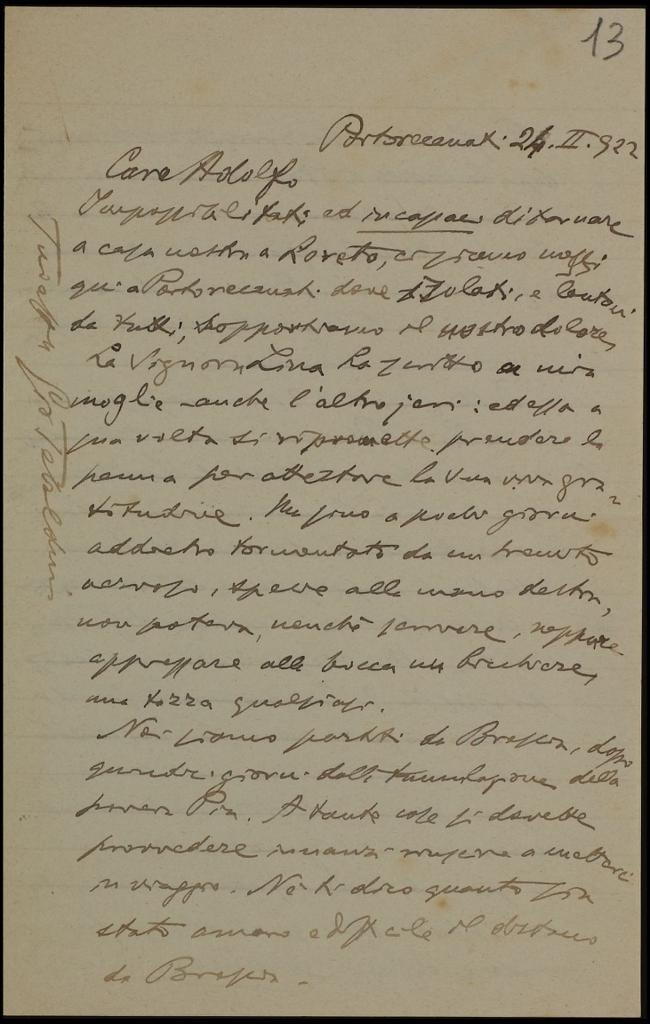 13
Portorecanati 24. II. 922
Caro Adolfo
Impossibilitati ed incapaci di tornare
a casa nostra a Loreto, ci siamo messi
qui a Portorecanati dove isolati, e lontani
da tutti, sopportiamo il nostro dolore,
La Signora Lina ha scritto a mia
moglie anche l'altro jeri: ed essa a
sua volta si ripromette prendere la
penna per attestare la sua viva gra-
titudine. Ma fino a pochi giorni
addietro tormentata da un tremito
nervoso, specie alla mano destra,
non poteva, nonché scrivere, neppure
appressare alla bocca un bicchiere,
una tazza qualsiasi.
Noi siamo partiti da Brescia, dopo
quindici giorni dalla tumulazione della
povera Pia. A tante cose si dovette
provvedere innanzi a metterci
in viaggio. Né ti dico quanto sia
stato amaro e difficile il distacco
da Brescia.
Tuo Gio Tebaldini